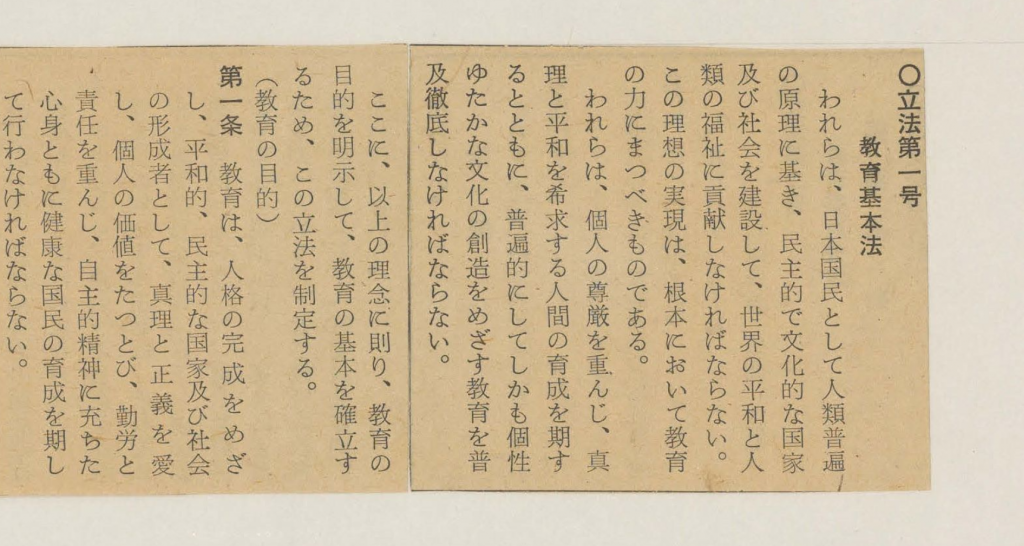 〇立法第一号
教育基本法
われらは、日本国民として人類普遍
の原理に基き、民主的で文化的な国家
及び社会を建設して、世界の平和と人
類の福祉に貢献しなければならない。
この理想の実現は、根本において教育
の力にまつべきものである。
われらは、個人の尊厳を重んじ、真
理と平和を希求する人間の育成を期す
るとともに、普遍的にしてしかも個性
ゆたかな文化の創造をめざす教育を普
及徹底しなければならない。
ここに、以上の理念に則り、教育の
目的を明示して、教育の基本を確立す
るため、この立法を制定する。
(教育の目的)
第一条 教育は、人格の完成をめざ
し、平和的、民主的な国家及び社会
の形成者として、真理と正義を愛
し、個人の価値をたつとび、勤労と
責任を重んじ、自主的精神に充ちた
心身ともに健康な国民の育成を期し
て行わなければならない。